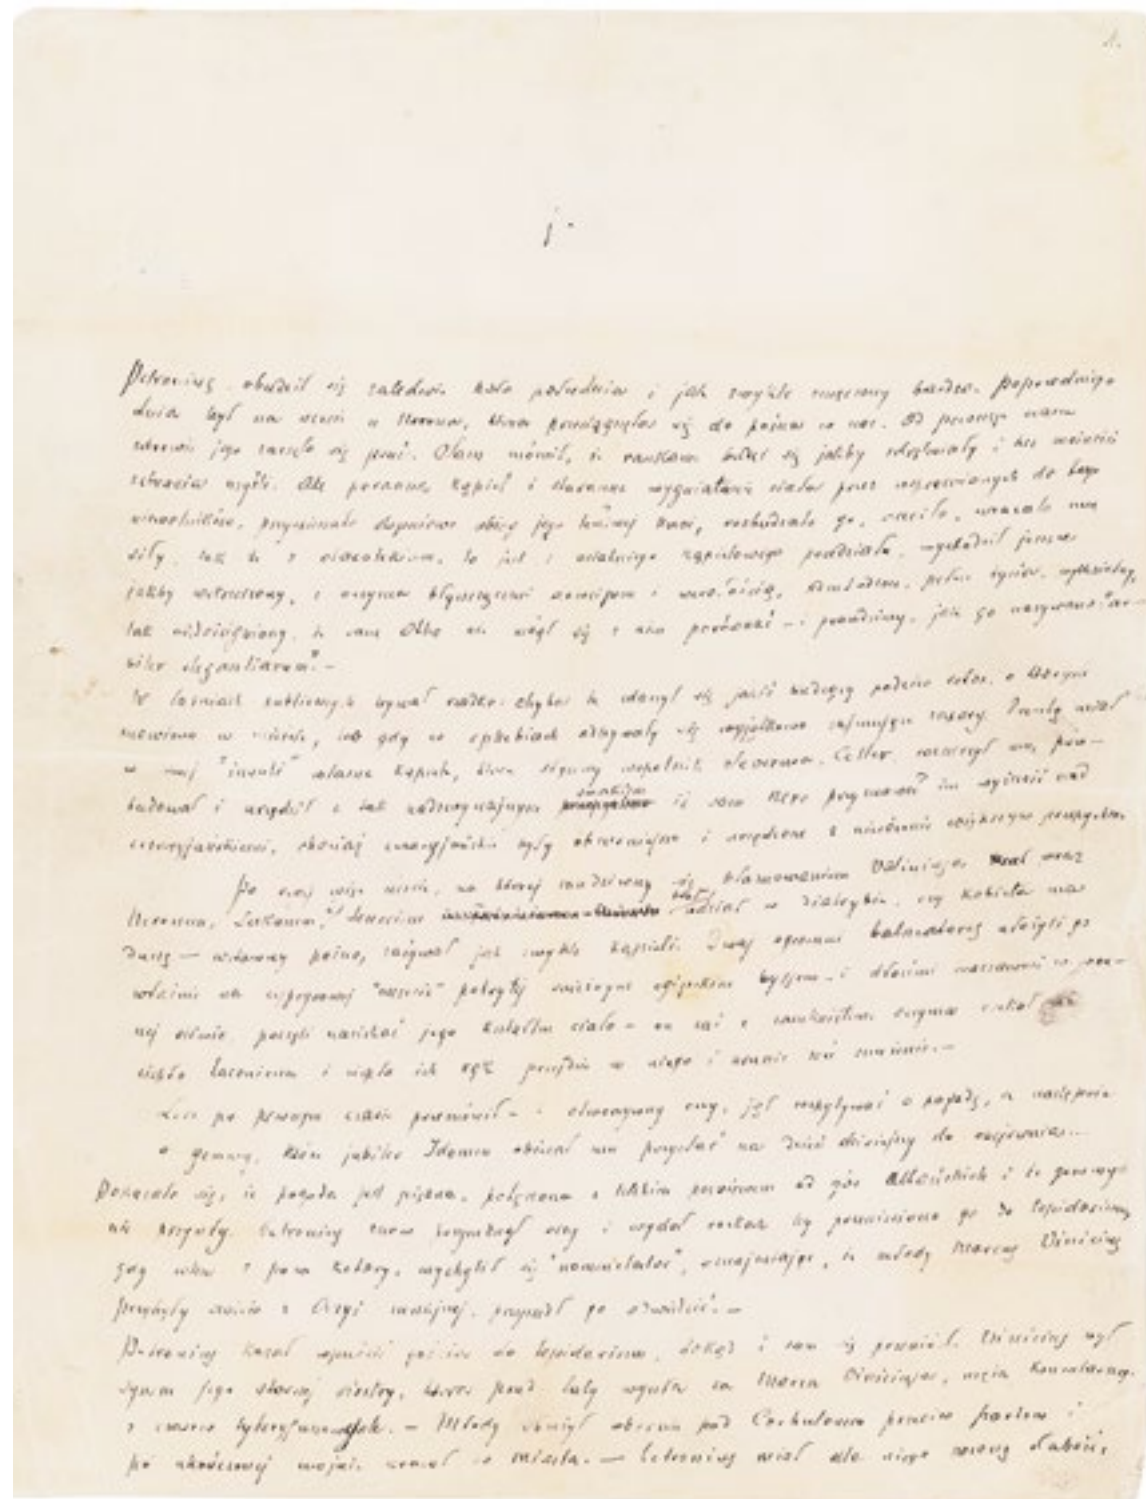 1.
j.
Petroniusz obudził się zaledwie koło południa i jak zwykle zmęczony bardzo. Poprzedniego
dnia był na uczcie u Nerona, która przeciągnęła się do późna w noc. Od pewnego czasu
zdrowie jego zaczęło się psuć. Sam mówił, że rankami budzi się jakby zdrętwiały i bez możności
zebrania myśli. Ale poranna kąpiel i staranne wygniatanie ciała przez wprawionych do tego
niewolników, przyspieszało stopniowo obieg jego leniwej krwi, rozbudzało go, cuciło, wracało mu
siły, tak że z elaeothesium, to jest z ostatniego kąpielowego przedziału, wychodził jeszcze
jakby wskrzeszony, z oczyma błyszczącemi dowcipem i wesołością, odmłodzon, pełen życia, wykwintny,
tak niedościgniony, że sam Otho nie mógł się z nim porównać — i prawdziwy, jak go nazywano: "ar-
biter elegantiarum". —
W łaźniach publicznych bywał rzadko: chyba że zdarzył się jakiś retor, o którym
mówiono w mieście, lub gdy w ephebiach odbywały się wyjątkowo zajmujące zapasy. Zresztą miał
w swej "insuli" własne kąpiele, które słynny wspólnik Severusa, Celler, rozszerzył mu, prze-
budował i urządził z tak nadzwyczajnym smakiem iż sam Nero przyznawał im wyższość nad
cezarjańskiemi, chociaż cezarjańskie były obszerniejsze i urządzone z nierównie większym przepychem.
Po owej więc uczcie, na której znudziwszy się błaznowaniem Vatiniusa, brał wraz
z Neronem, Lukanem i Senecionem udział w diatrybie, czy kobieta ma
duszę — wstawszy późno, zażywał jak zwykle kąpieli. Dwaj ogromni balneatorzy złożyli go
właśnie na cyprysowej "mensie" pokrytej śnieżnym egipskim byssem — i dłońmi maczanemi w won-
nej oliwie, poczęli nacierać jego kształtne ciało — on zaś z zamkniętemi oczyma czekał aż
ciepło laconicum i ciepło ich rąk przejdzie w niego i usunie zeń znużenie. —
Lecz po pewnym czasie przemówił — i otworzywszy oczy, jął rozpytywać o pogodę, a następnie
o gemmy, które jubiler Idomen obiecał mu przysłać na dzień dzisiejszy do obejrzenia...
Pokazało się, że pogoda jest piękna, połączona z lekkim powiewem od gór Albańskich i że gemmy
nie przyszły. Petroniusz znów przymknął oczy i wydał rozkaz, by przeniesiono go do tepidarium,
gdy wtem z poza kotary, wychylił się "nomenclator", oznajmiając, że młody Marcus Vinicius
przybyły świeżo z Azyi mniejszej, przyszedł go odwiedzić. —
Petroniusz kazał wpuścić gościa do tepidarium, dokąd i sam się przeniósł. Vinicius był
synem jego starszej siostry, która przed laty wyszła za Marca Viniciusa, męża konsularnego
z czasów Tyberyuszowych. — Młody służył obecnie pod Corbulonem przeciw Partom i
po ukończonej wojnie wracał do miasta. — Petroniusz miał dla niego pewną słabość